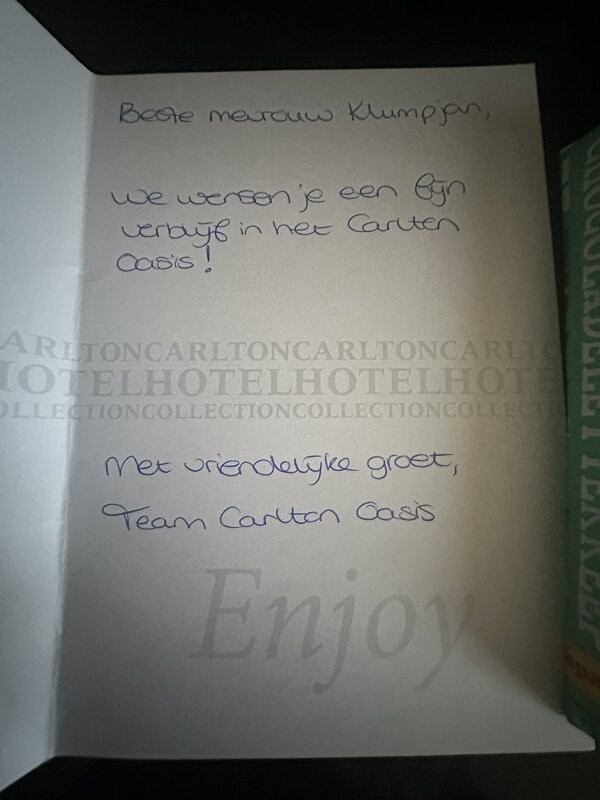 Beste mevrouw Klumpjan,
We wensen je een fijn
verblijf in het Carlton
Oasis!
ARLTONCARLTONCARLTONCARLTONCARLTO
HOTELHOTELHOTELHOTE
OLLECTIONCOLLECTIONCOLLECTIONCOLLECTION
Met vriendelijke groet,
Team Carlton Oasis
Enjoy